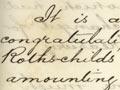 It is a
congratulati
Rothschilds
amounting